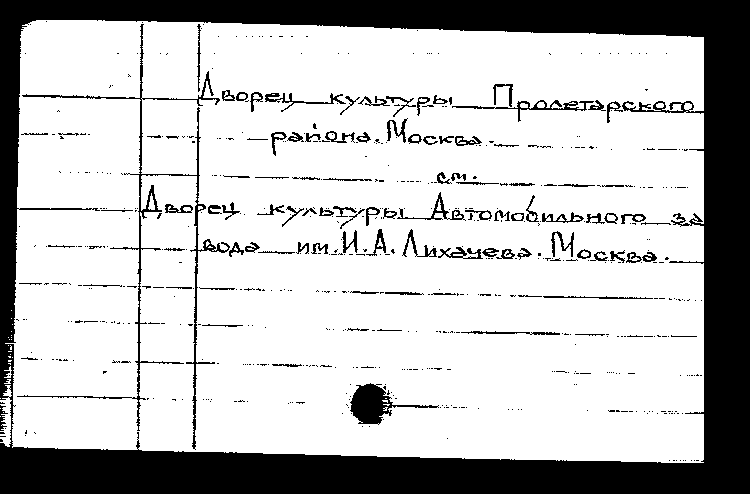 Дворец культуры Пролетарского
района. Москва.
см.
Дворец культуры Автомобильного за
вода им. И. А. Лихачева. Москва.